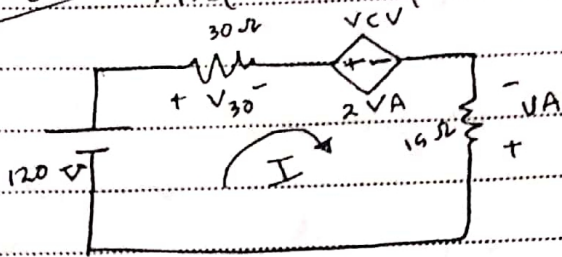 30Ω VCV
+ V30 - + -
2VA
- VA +
15Ω
120 V
I